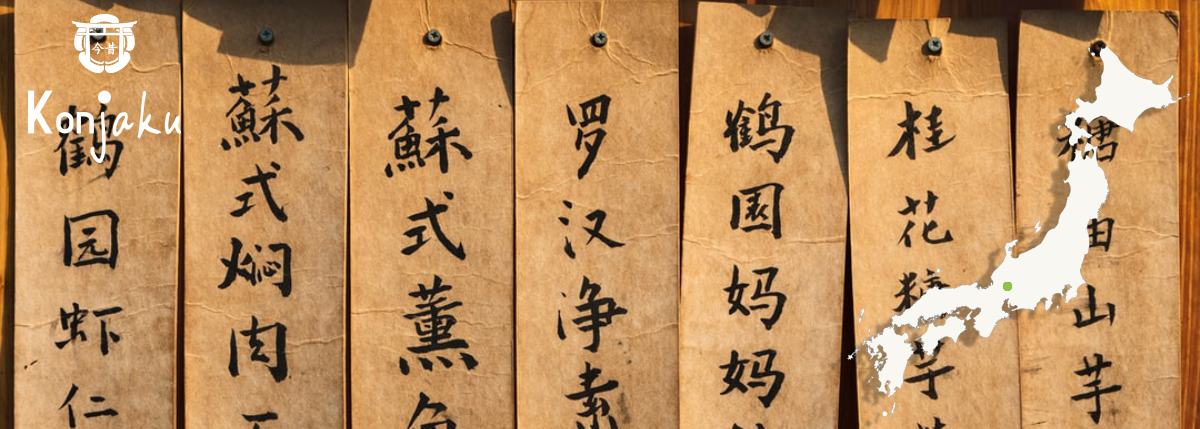 今昔
Konjaku
鹤园虾仁
蘇式焖肉
蘇式薰
罗汉净素
鹤园妈妈
桂花糖芋
山芋